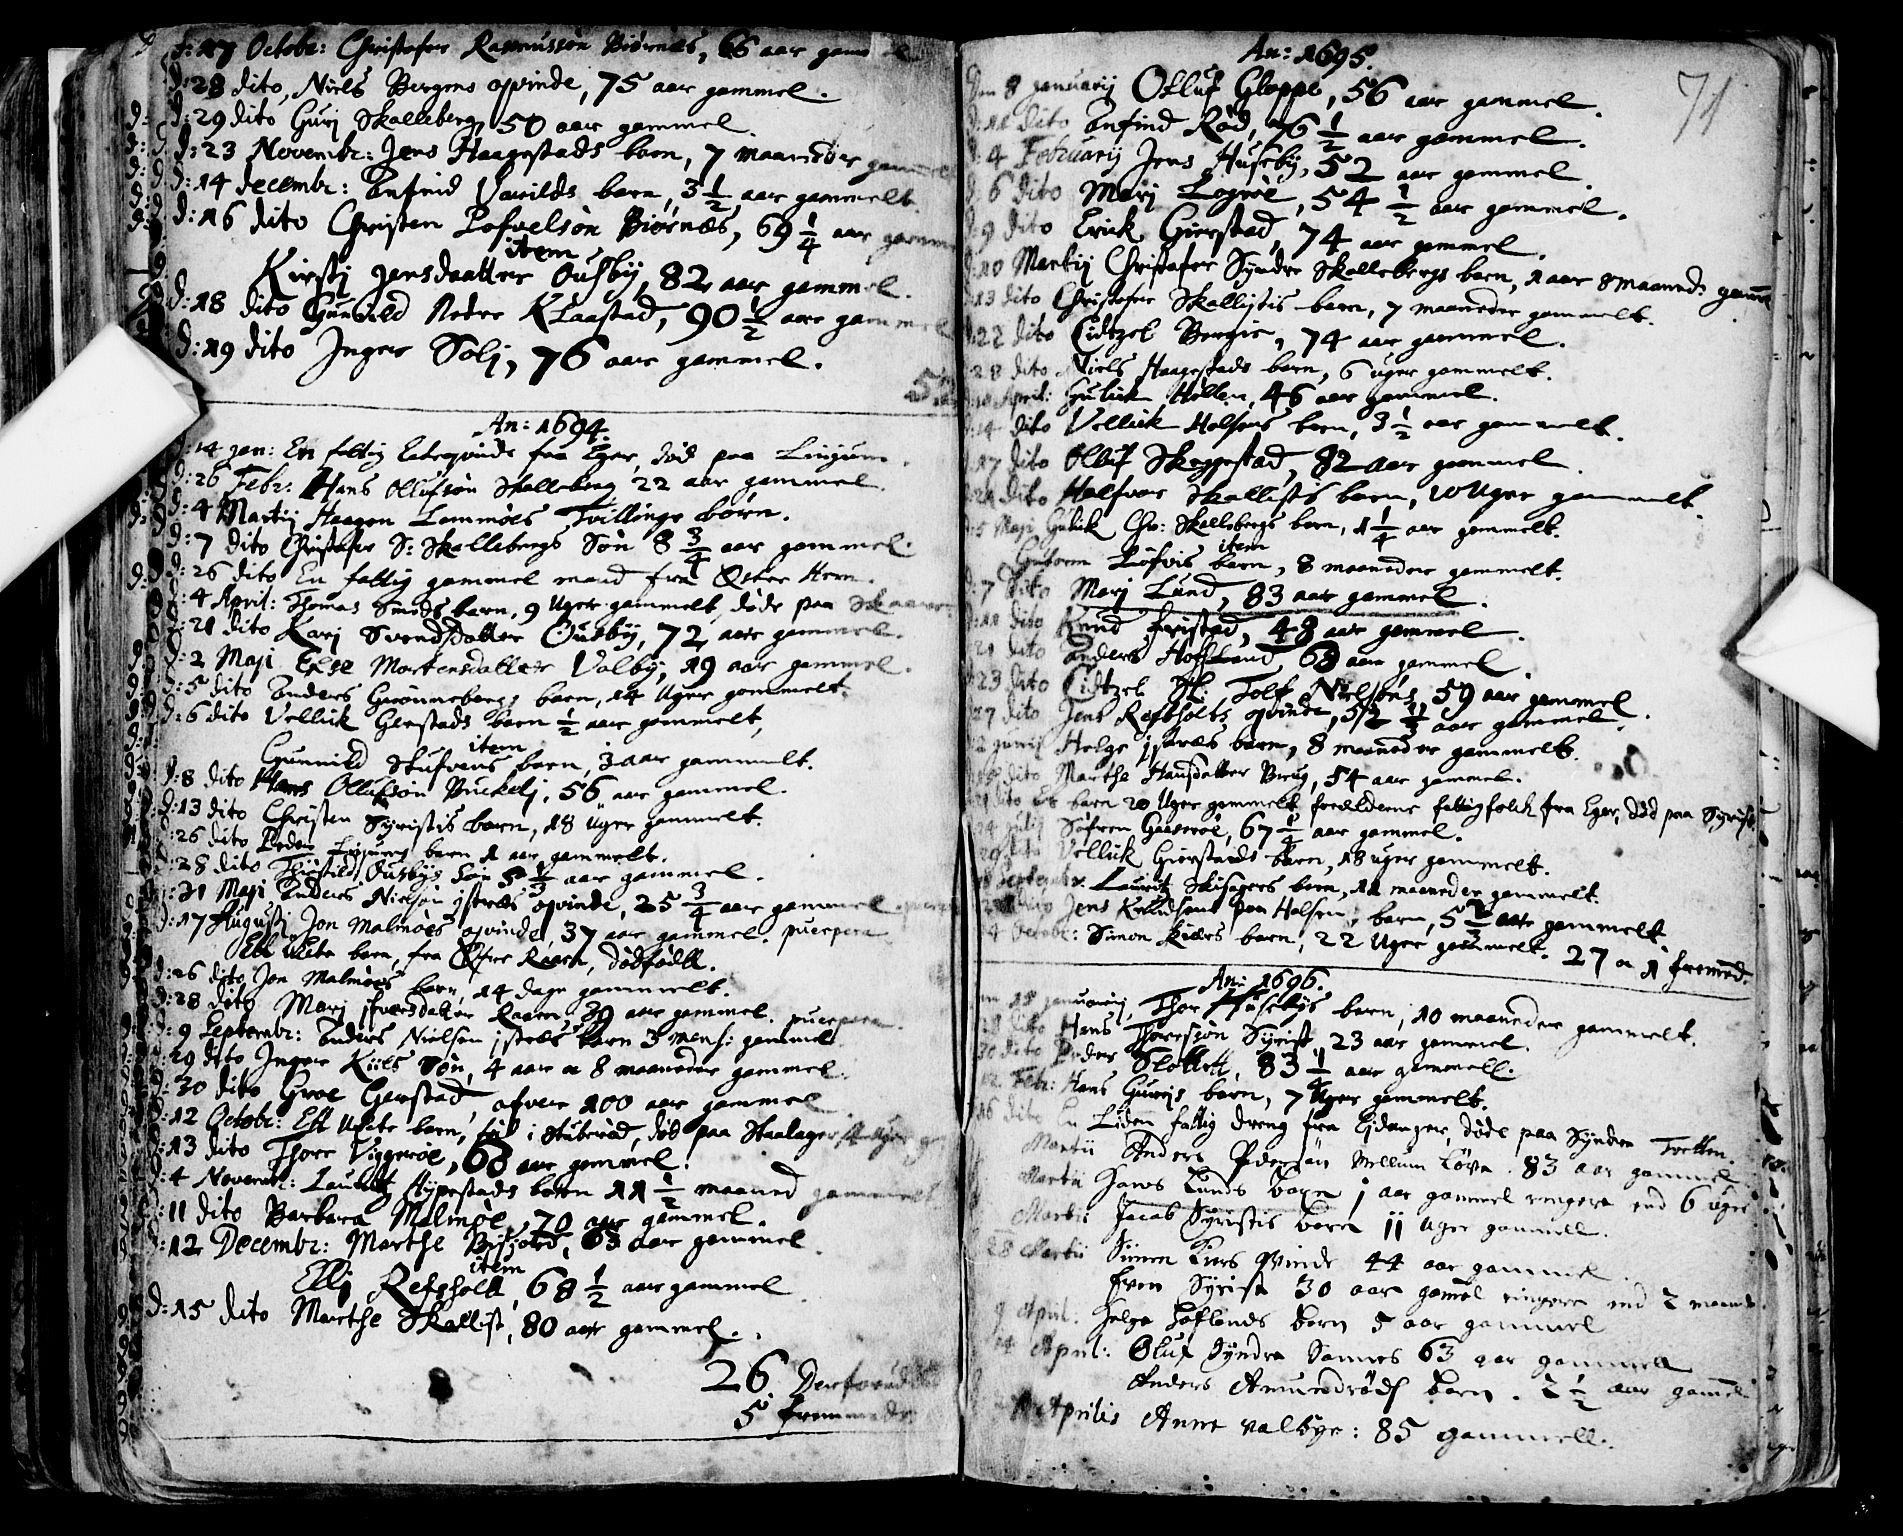 d: 17 Octobr: Christofer Rasmussøn Biørnæs, 66 aar gam
d: 28 dito, Niels Bergens qvinde, 75 aar gammel.
d: 29 dito Gurj Skalleberg, 50 aar gammel.
d: 23 Novembr: Jens Haagestads barn, 7 maaneder gammel
d: 14 decembr: Anfind Varilds barn, 3 1/2 aar gammelt.
d: 16 dito Christen Pofvelsøn Biørnæs, 69 1/4 aar gamm
item
Kirstj Jensdaatter Ousbÿ, 82 aar gammel.
d: 18 dito Gunnild Nedre Klaastad, 90 1/2 aar gammel
d: 19 dito Inger Solj, 76 aar gammel.
An: 1694.
d: 14 jan: En fattig qvinde fra Eger, død paa Linjum.
d: 26 Febr: Hans Ollufsøn Skalleberg 22 aar gammel.
d: 4 Martij Haagen Lammøes Tvillinge børn.
d: 7 dito Christofer S: Skallebergs Søn 8 3/4 aar gammel.
d: 26 dito En fattig gammel mand fra Øster Hem.
d: 4 April: Thomas Smeds barn, 9 Uger gammelt, døde paa
d: 21 dito Karj Svendsdatter Ousbÿ, 72 aar gammel.
d: 2 Maji Else Mortensdatter Valbÿ, 19 aar gammel.
d: 5 dito Anders Grønnebergs barn, 14 Uger gammelt.
d: 6 dito Velluk Gerstads barn 1/2 aar gammelt,
item
Gunnild Stufvens barn, 3 aar gammelt.
d: 8 dito Hans Ollufsøn Buckelj, 56 aar gammel.
d: 13 dito Christen Syristis barn, 18 Uger gammelt.
d: 26 dito Peder barn 1 aar gammelt.
d: 28 dito Ousbÿs søn 5 1/3 aar gammel.
d: 31 Maji Anders Nielsøn Istræs qvinde, 25 3/4 aar gammel
d: 17 Augustj Jon Malmøes qvinde, 37 aar gammel. puerpera
Ett Uæte barn, fra Øfre Raaen, dødfødt.
d: 26 dito Jon Malmøes barn, 14 dage gammelt.
d: 28 dito Marj Ifversdatter Raaen 39 aar gammel. puerpera.
d: 9 Septembr: Anders Nielsøn Istræs barn 3 mens: gammel
d: 29 dito Inger Kiils Søn, 4 aar 8 maaneder gammel.
d: 30 dito Groe Gerstad, ofver 100 aar gammel
d: 12 Octobr: Ett Uæte barn, fød i Stuberød, død paa
d: 13 dito Thore Viggerøe, 68 aar gammel.
d: 4 Novembr: Lauritz Hÿpestads barn 11 1/2 maaned gammelt
d: 11 dito Barbara Malmøe, 70 aar gammel.
d: 12 Decembr: Marthe 63 aar gammel.
item
Ellj Refsholt, 68 1/2 aar gammel
d: 15 dito Marthe Skallist, 80 aar gammel.
26
5 fremmede
71
An: 1695.
8 januarij Olluf Gloppe, 56 aar gammel.
d: 11 dito Anfind Rød, 76 1/2 aar gammel.
d: 4 Februarij Jens Husebÿ, 52 aar gammel.
d: 6 dito Marj Lagrøe, 54 1/2 aar gammel.
d: 9 dito Erick Gierstad, 74 aar gammel.
d: 10 Martij Christofer Syndre Skallebergs barn, 1 aar 8 maaneds gamm
13 dito Christofer Skallistis barn, 7 maaneder gammelt.
22 dito Cidtzel Bergie, 74 aar gammel.
28 dito Niels Haagestads barn, 6 uger gammelt.
April: Gulick Hollen, 46 aar gammel.
14 dito Velluk Holsens barn, 3 1/2 aar gammelt.
17 dito Olluf Skeggestad, 82 aar gammel.
21 dito Halfvor Skallistis barn, 10 Uger gammelt.
d: 5 Maji Gulick Chr: Skallebergs barn, 1 1/4 aar gammelt.
item
Guttorm Løfvis barn, 8 maaneder gammelt.
d: 7 dito Marj Lund, 83 aar gammel.
d: 11 dito Knud Fristad, 48 aar gammel.
21 dito Anders Hoffland 68 aar gammel.
23 dito Cidtzel Sl: Tolf Nielsøns, 59 aar gammel.
27 dito Jens Refsholts qvinde, 52 1/3 aar gammel.
2 junij Helge Istræs barn, 8 maaneder gammelt.
dito Marthe Hansdatter Brug, 54 aar gammel.
21 dito Et barn 20 Uger gammelt forældrene fattigfolck fra Eger, død paa Syrist.
24 julij Søfren Gaaserøe, 67 1/4 aar gammel.
29 dito Velluk Gierstads barn, 18 uger gammelt.
Septembr. Lauritz barn, 11 maaneder gammelt.
Jens Knudsøns paa Holsen barn, 5 2/3 aar gammelt
4 Octobr: Simon Kiærs barn, 22 Uger gammelt. 27 1 fremmed.
An: 1696.
18 januarij, Thor Husebÿs barn, 10 maaneder gammelt.
dito Hans Thoressøn Syrist, 23 aar gammel.
30 dito Peder Slottet, 83 1/4 aar gammell.
12 Febr: Hans Gurijs barn, 7 Uger gammelt.
16 dito En Liden fattig dreng fra Eidanger, døde paa Syndre Tvetten.
Martii Anders Pedersøn Mellum Løve. 83 aar gammel
Martii Hans Lunds barn 1 aar gammel ringere end 6 uger
Martii Jacob Syristis barn 11 uger gammell.
28 Martii Simen Kiers Qvinde 44 aar gammel
Even Syrist 30 aar gamel ringere end 2 maaneder.
9 April. Helge Hoflands barn 5 aar gammel
14 April: Oluf Syndre Sannes 63 aar gammell
Anders Amundrøds barn. 2 1/2 aar gamel
Aprilis Anne Valbye: 85 gammell.